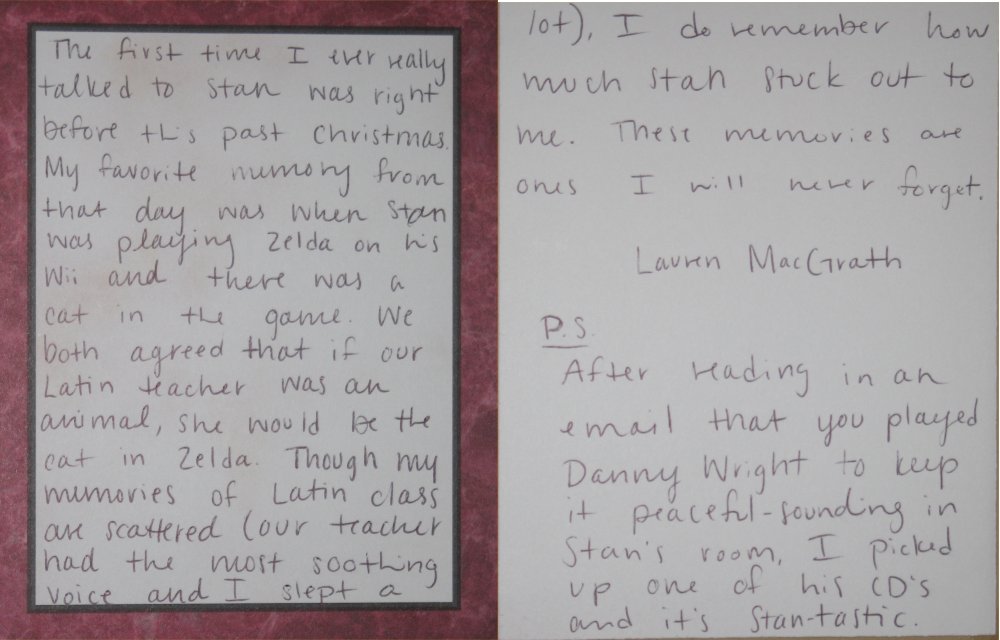 The first time I ever really
talked to Stan was right
before this past Christmas.
My favorite memory from
that day was when Stan
was playing Zelda on his
Wii and there was a
cat in the game. We
both agreed that if our
Latin teacher was an
animal, she would be the
cat in Zelda. Though my
memories of Latin class
are scattered (our teacher
had the most soothing
voice and I slept a
lot), I do remember how
much Stan stuck out to
me. These memories are
ones I will never forget.
Lauren MacGrath
P.S.
After reading in an
email that you played
Danny Wright to keep
it peaceful-sounding in
Stan's room, I picked
up one of his CD's
and it's Stan-tastic.